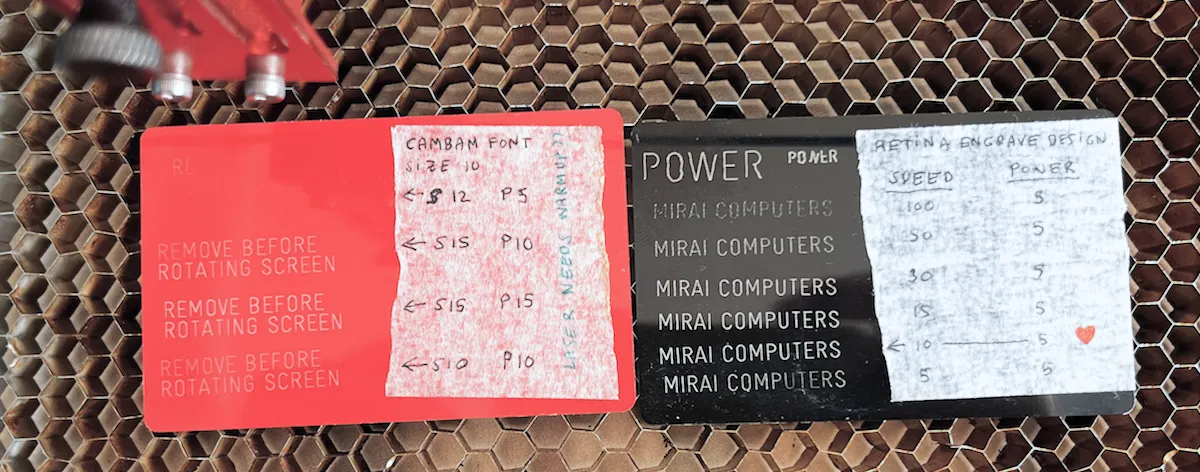 RL
REMOVE BEFORE
ROTATING SCREEN
REMOVE BEFORE
ROTATING SCREEN
REMOVE BEFORE
ROTATING SCREEN
CAMBAM FONT
SIZE 10
← S 12 P5
← S15 P10
← S15 P15
← S10 P10
LASER NEEDS WARMUP??
POWER POWER
MIRAI COMPUTERS
MIRAI COMPUTERS
MIRAI COMPUTERS
MIRAI COMPUTERS
MIRAI COMPUTERS
MIRAI COMPUTERS
RETINA ENGRAVE DESIGN
SPEED POWER
100 5
50 5
30 5
15 5
← 10 — 5 ♥
5 5